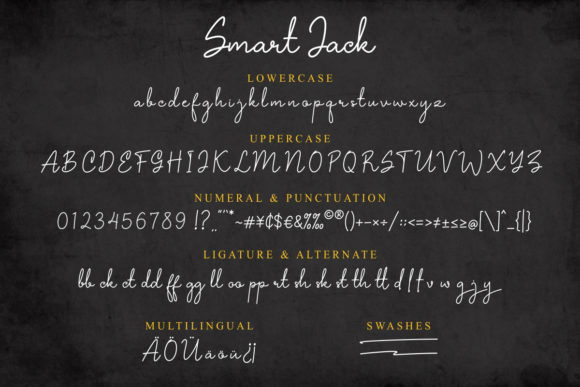 Smart Jack
LOWERCASE
abcdefghijklmnopqrstuvwxyz
UPPERCASE
ABCDEFGHIJKLMNOPQRSTUVWXYZ
NUMERAL & PUNCTUATION
0123456789 !?,,"'"*~#¥₵$€&%‰©®()+-×÷/:;<=>≠±≤≥@[\]^_{|}
LIGATURE & ALTERNATE
bb ck ct dd ff gg ll oo pp rt sh sk st th tt d l t v w g j y
MULTILINGUAL
SWASHES
ÄÖÜäöü¿¡